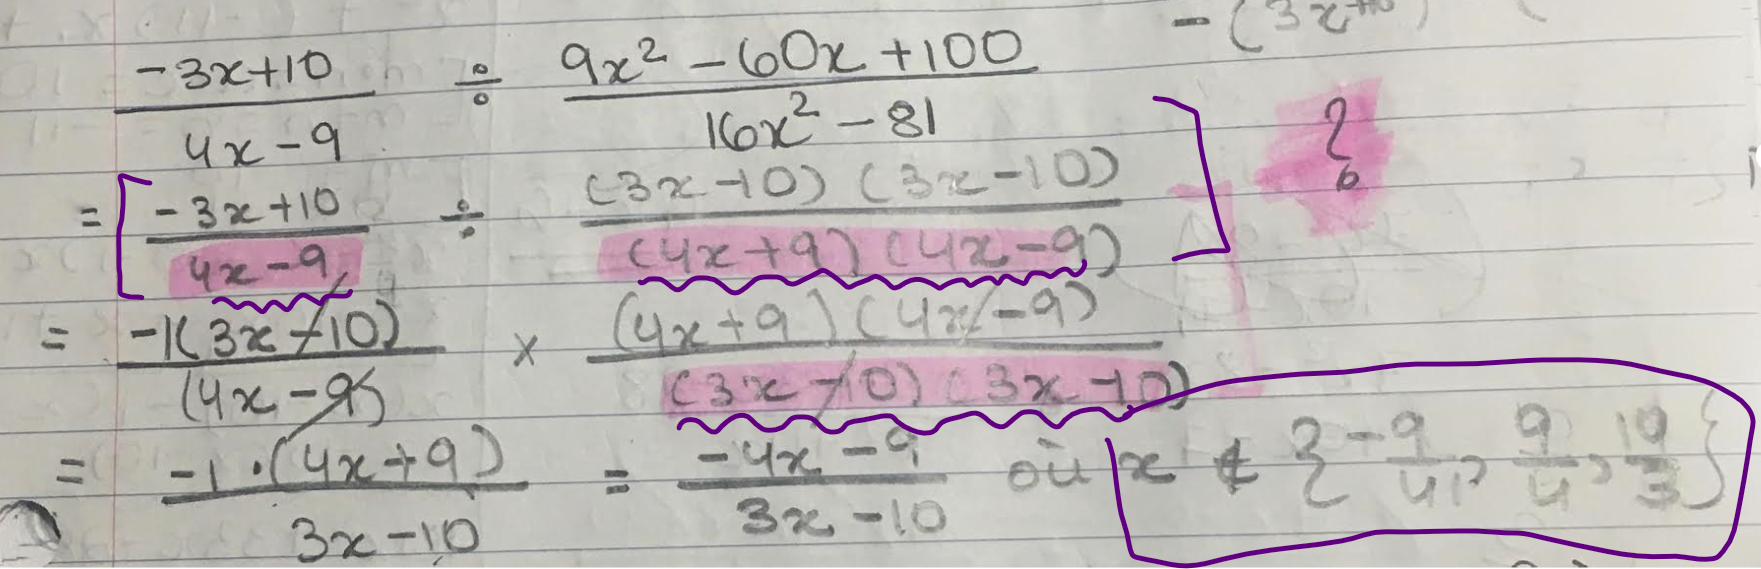 -(3x+10)
(-3x+10)/(4x-9) ÷ (9x² - 60x + 100)/(16x² - 81)
= [(-3x+10)/(4x-9) ÷ ((3x-10)(3x-10))/((4x+9)(4x-9))] ?
= (-1(3x-10))/((4x-9)) × ((4x+9)(4x-9))/((3x-10)(3x-10))
= (-1·(4x+9))/(3x-10) = (-4x-9)/(3x-10) où x ∉ {-9/4, 9/4, 10/3}